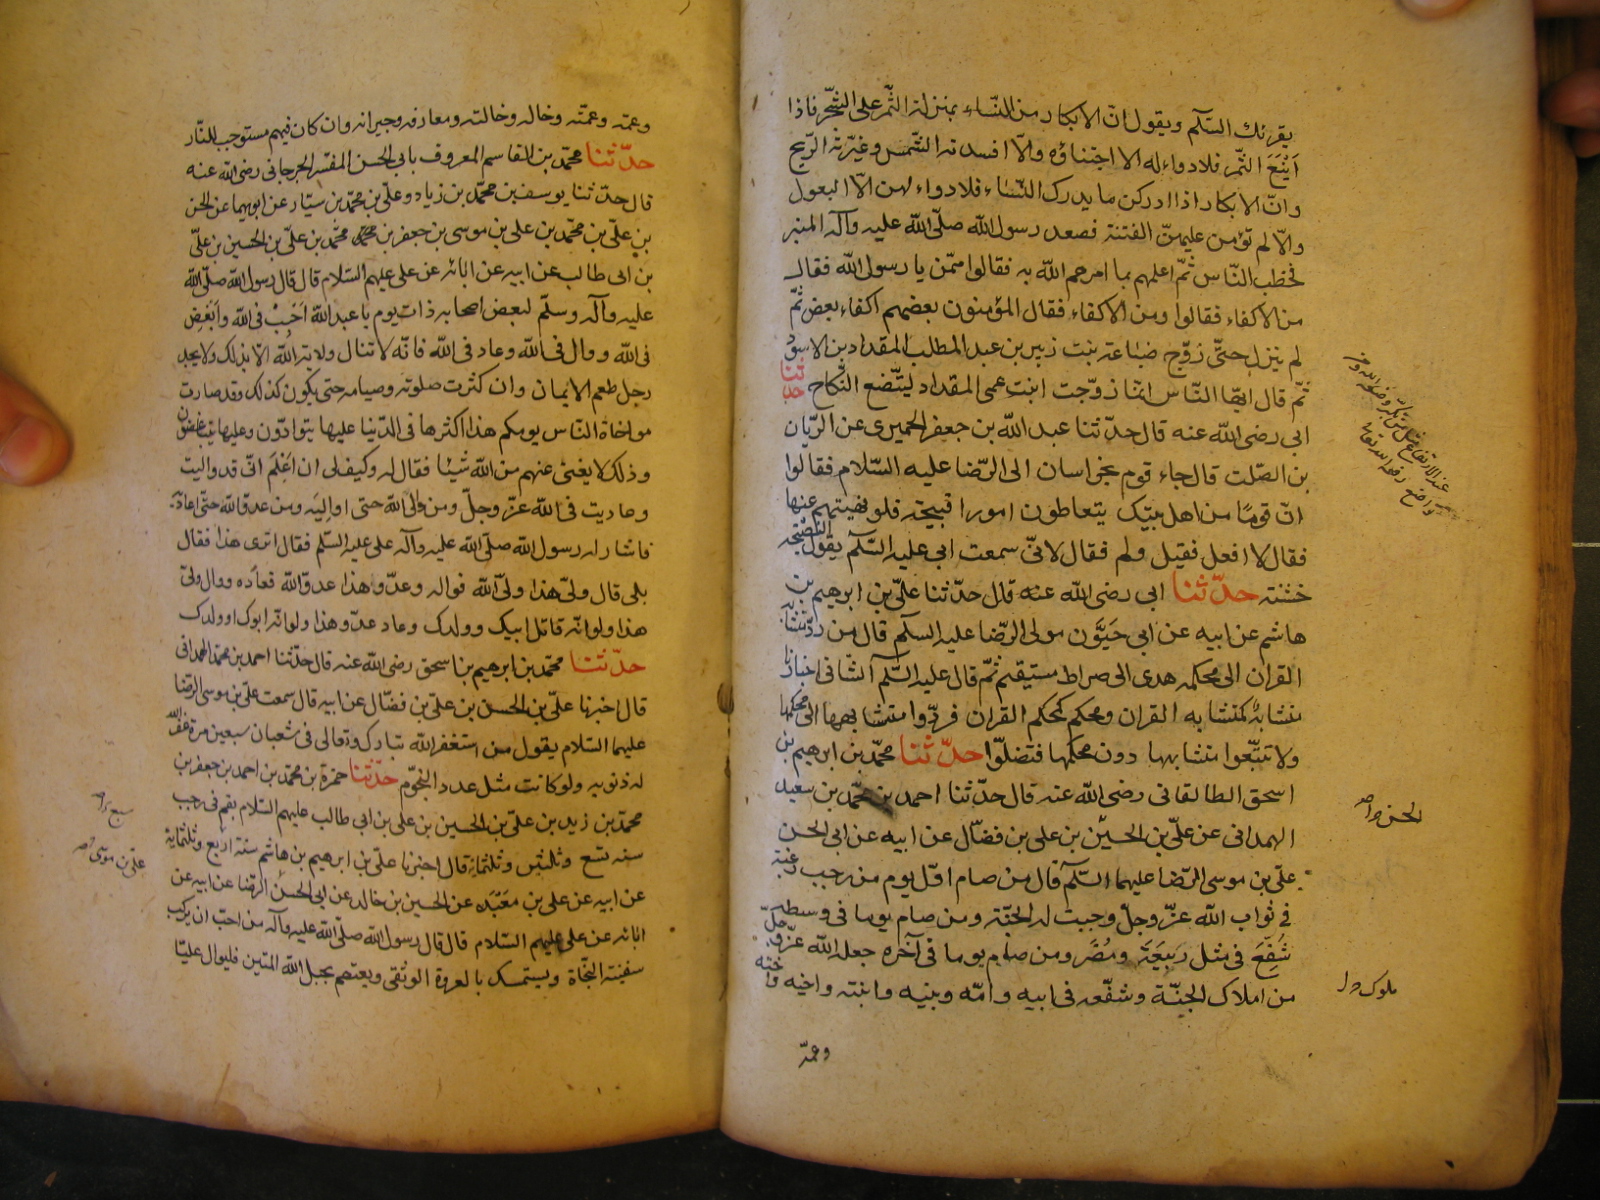 يقرئك السّلم ويقول ان الابكار من النّساء بمنزلة الثّمر على الشّجر فاذا
اَيْنَعَ الثّمر فلا دواء له الا اجتناؤه والّا افسدته الشّمس وغيّرته الرّيح
وانّ الابكار اذا ادركن ما يدرك النّساء فلا دواء لهن الّا البعول
والّا لم تؤمن عليهنّ الفتنة فصعد رسول الله صلّى الله عليه وآله المنبر
فخطب النّاس ثمّ اعلمهم بما امرهم الله به فقالوا ممّن يا رسول الله فقال
من الاكفاء فقالوا ومن الاكفاء فقال المؤمنون بعضهم اكفاء بعض ثمّ
لم ينزل حتّى زوّج ضباعة بنت زبير بن عبد المطلب المقداد بن الاسود
ثمّ قال ايّها النّاس انّما زوّجت ابنت عمى المقداد ليتّضع النّكاح حدّثنا
ابى رضى الله عنه قال حدّثنا عبد الله بن جعفر الحميرى عن الرّيان
بن الصّلت قال جاء قوم بخراسان الى الرّضا عليه السّلام فقالوا
انّ قومًا من اهل بيتك يتعاطون امورا قبيحة فلو نهيتهم عنها
فقال لا افعل فقيل ولم فقال لانّى سمعت ابى عليه السّلم يقول النّصيحة
خشنة حدّثنا ابى رضى الله عنه قال حدّثنا علىّ بن ابرهيم بن
هاشم عن ابيه عن ابى حَيَّون مولى الرّضا عليه السلم قال من ردّ متشابه
القران الى محكمه هدى الى صراط مستقيم ثمّ قال عليه السّلم انّ فى اخبارنا
متشابهٌ كمتشابه القران ومحكم كمحكم القران فردّوا متشابهها الى محكمها
ولا تتّبعوا متشابهها دون محكمها فتضلّوا حدّثنا محمّد بن ابرهيم بن
اسحق الطالقانى رضى الله عنه قال حدّثنا احمد بن محمّد بن سعيد
الهمدانى عن علىّ بن الحسين بن على بن فضّال عن ابيه عن ابى الحسن
علىّ بن موسى الرّضا عليهما السّلم قال من صام اوّل يوم من رجب رغبة
فى ثواب الله عزّ وجلّ وجبت له الجنّة ومن صام يوما فى وسطه
شُفِّعَ فى مثل ربيعَةَ ومُضَرَ ومن صام يوما فى آخره جعله الله عزّ وجلّ
من املاك الجنّة وشفّعه فى ابيه وامّه وبنيه وابنته واخيه واخته
وعمّه
الحسن
ملوك
وعمّه وعمّته وخاله وخالته ومعارفه وجيرانه وان كان فيهم مستوجب للنّار
حدّثنا محمّد بن القاسم المعروف بابى الحسن المفسّر الجرجانى رضى الله عنه
قال حدّثنا يوسف بن محمّد بن زياد وعلىّ بن محمّد بن سيّار عن ابويهما عن الحسن
بن علىّ بن محمّد بن على بن موسى بن جعفر بن محمّد بن علىّ بن الحسين بن علىّ
بن ابى طالب عن ابيه عن ابائه عن على عليهم السّلام قال قال رسول الله صلّى الله
عليه وآله وسلّم لبعض اصحابه ذات يوم يا عبد الله اَحْبِبْ فى الله وابْغِض
فى الله ووال فى الله وعاد فى الله فانّه لا تنال ولاية الله الّا بذلك ولا يجد
رجل طعم الايمان وان كثرت صلوته وصيامه حتى يكون كذلك وقد صارت
مواخاة النّاس يومكم هذا اكثرها فى الدّنيا عليها يتوادّون وعليها يتباغضون
وذلك لا يغنى عنهم من الله شيئا فقال له وكيف لى ان اعْلَم انّى قد واليت
وعاديت فى الله عزّ وجلّ ومن ولىّ الله حتى اوالِيَه ومن عدوّ الله حتّى اعاديه
فاشار له رسول الله صلّى الله عليه وآله على علىّ عليه السّلم فقال اترى هذا فقال
بلى قال ولىّ هذا ولىّ الله فواله وعدّو هذا عدوّ الله فعاده ووال ولىّ
هذا ولو انّه قاتل ابيك وولدك وعاد عدّو هذا ولو انّه ابوك او ولدك
حدّثنا محمّد بن ابرهيم بن اسحق رضى الله عنه قال حدّثنا احمد بن محمّد الهمدانى
قال اخبرنا علىّ بن الحسن بن علىّ بن فضّال عن ابيه قال سمعت علىّ بن موسى الرّضا
عليهما السّلام يقول من استغفر الله تبارك وتعالى فى شعبان سبعين مرة غفر الله
له ذنوبه ولو كانت مثل عدد النّجوم حدّثنا حمزة بن محمّد بن احمد بن جعفر بن
محمّد بن زيد بن علىّ بن الحسين بن على بن ابى طالب عليهم السّلام بقم فى رجب
سنه تسع وثلثين وثلثمائة قال اخبرنا علىّ بن ابرهيم بن هاشم سنة اربع وثلثمائة
عن ابيه عن على بن مَعْبَد عن الحسين بن خالد عن ابى الحسن الرّضا عن ابيه عن
ابائه عن على عليهم السّلام قال قال رسول الله صلّى الله عليه وآله من احبّ ان يركب
سفينة النّجاة ويستمسك بالعروة الوثقى ويعتصم بحبل الله المتين فليوال عليّا
علىّ بن موسى